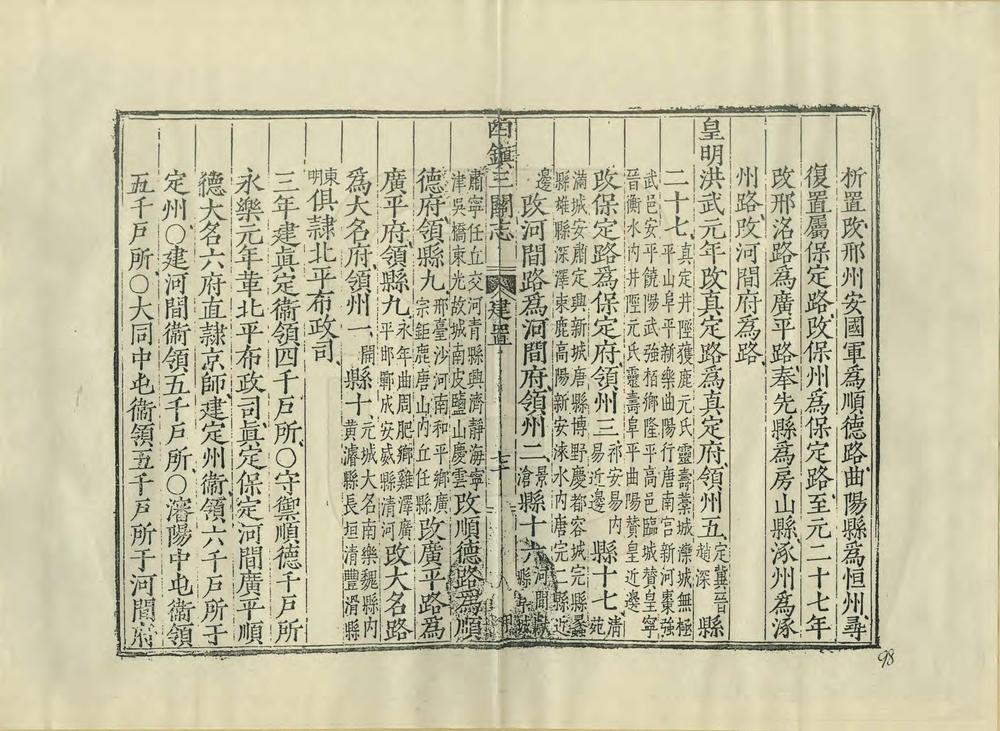 析置改邢州安國軍爲順德路曲陽縣爲恒州尋
復置屬保定路改保州爲保定路至元二十七年
改邢洛路爲廣平路奉先縣爲房山縣涿州爲涿
州路改河間府爲路
皇明洪武元年改真定路爲真定府領州五定冀晉趙深縣
二十七真定井陘獲鹿元氏靈壽藁城欒城無極平山阜平新樂曲陽行唐南宮新河棗強
武邑安平饒陽武強栢鄉隆平高邑臨城贊皇寧晉衡水內井陘元氏靈壽阜平曲陽贊皇近邊
改保定路爲保定府領州三祁安易內易近邊縣十七清苑
滿城安肅定興新城唐縣博野慶都容城完縣蠡縣雄縣深澤束鹿高陽新安淶水內唐完二縣近
邊改河間路爲河間府領州二景滄縣十六河間獻縣阜城
四鎮三關志 建置 七十
肅寧任丘交河青縣興濟靜海寧津吳橋東光故城南皮鹽山慶雲改順德路爲順
德府領縣九邢臺沙河南和平鄉廣宗鉅鹿唐山內丘任縣改廣平路爲
廣平府領縣九永年曲周肥鄉雞澤廣平邯鄲成安威縣清河改大名路
爲大名府領州一開縣十元城大名南樂魏縣內黃濬縣長垣清豐滑縣
東明俱隸北平布政司
三年建眞定衞領四千戶所○守禦順德千戶所
永樂元年革北平布政司眞定保定河間廣平順
德大名六府直隷京師建定州衞領六千戶所于
定州○建河間衞領五千戶所○瀋陽中屯衞領
五千戶所○大同中屯衞領五千戶所于河間府
98